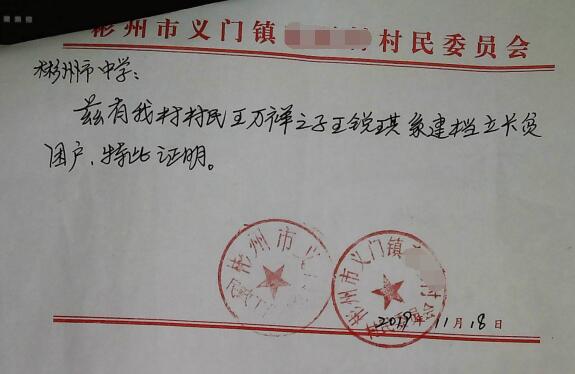 彬州市义门镇村民委员会
彬州市中学:
兹有我村村民王万祥之子王锐琪系建档立长贫
困户,特此证明。
彬州市义
彬州市义门镇
2019年11月18日